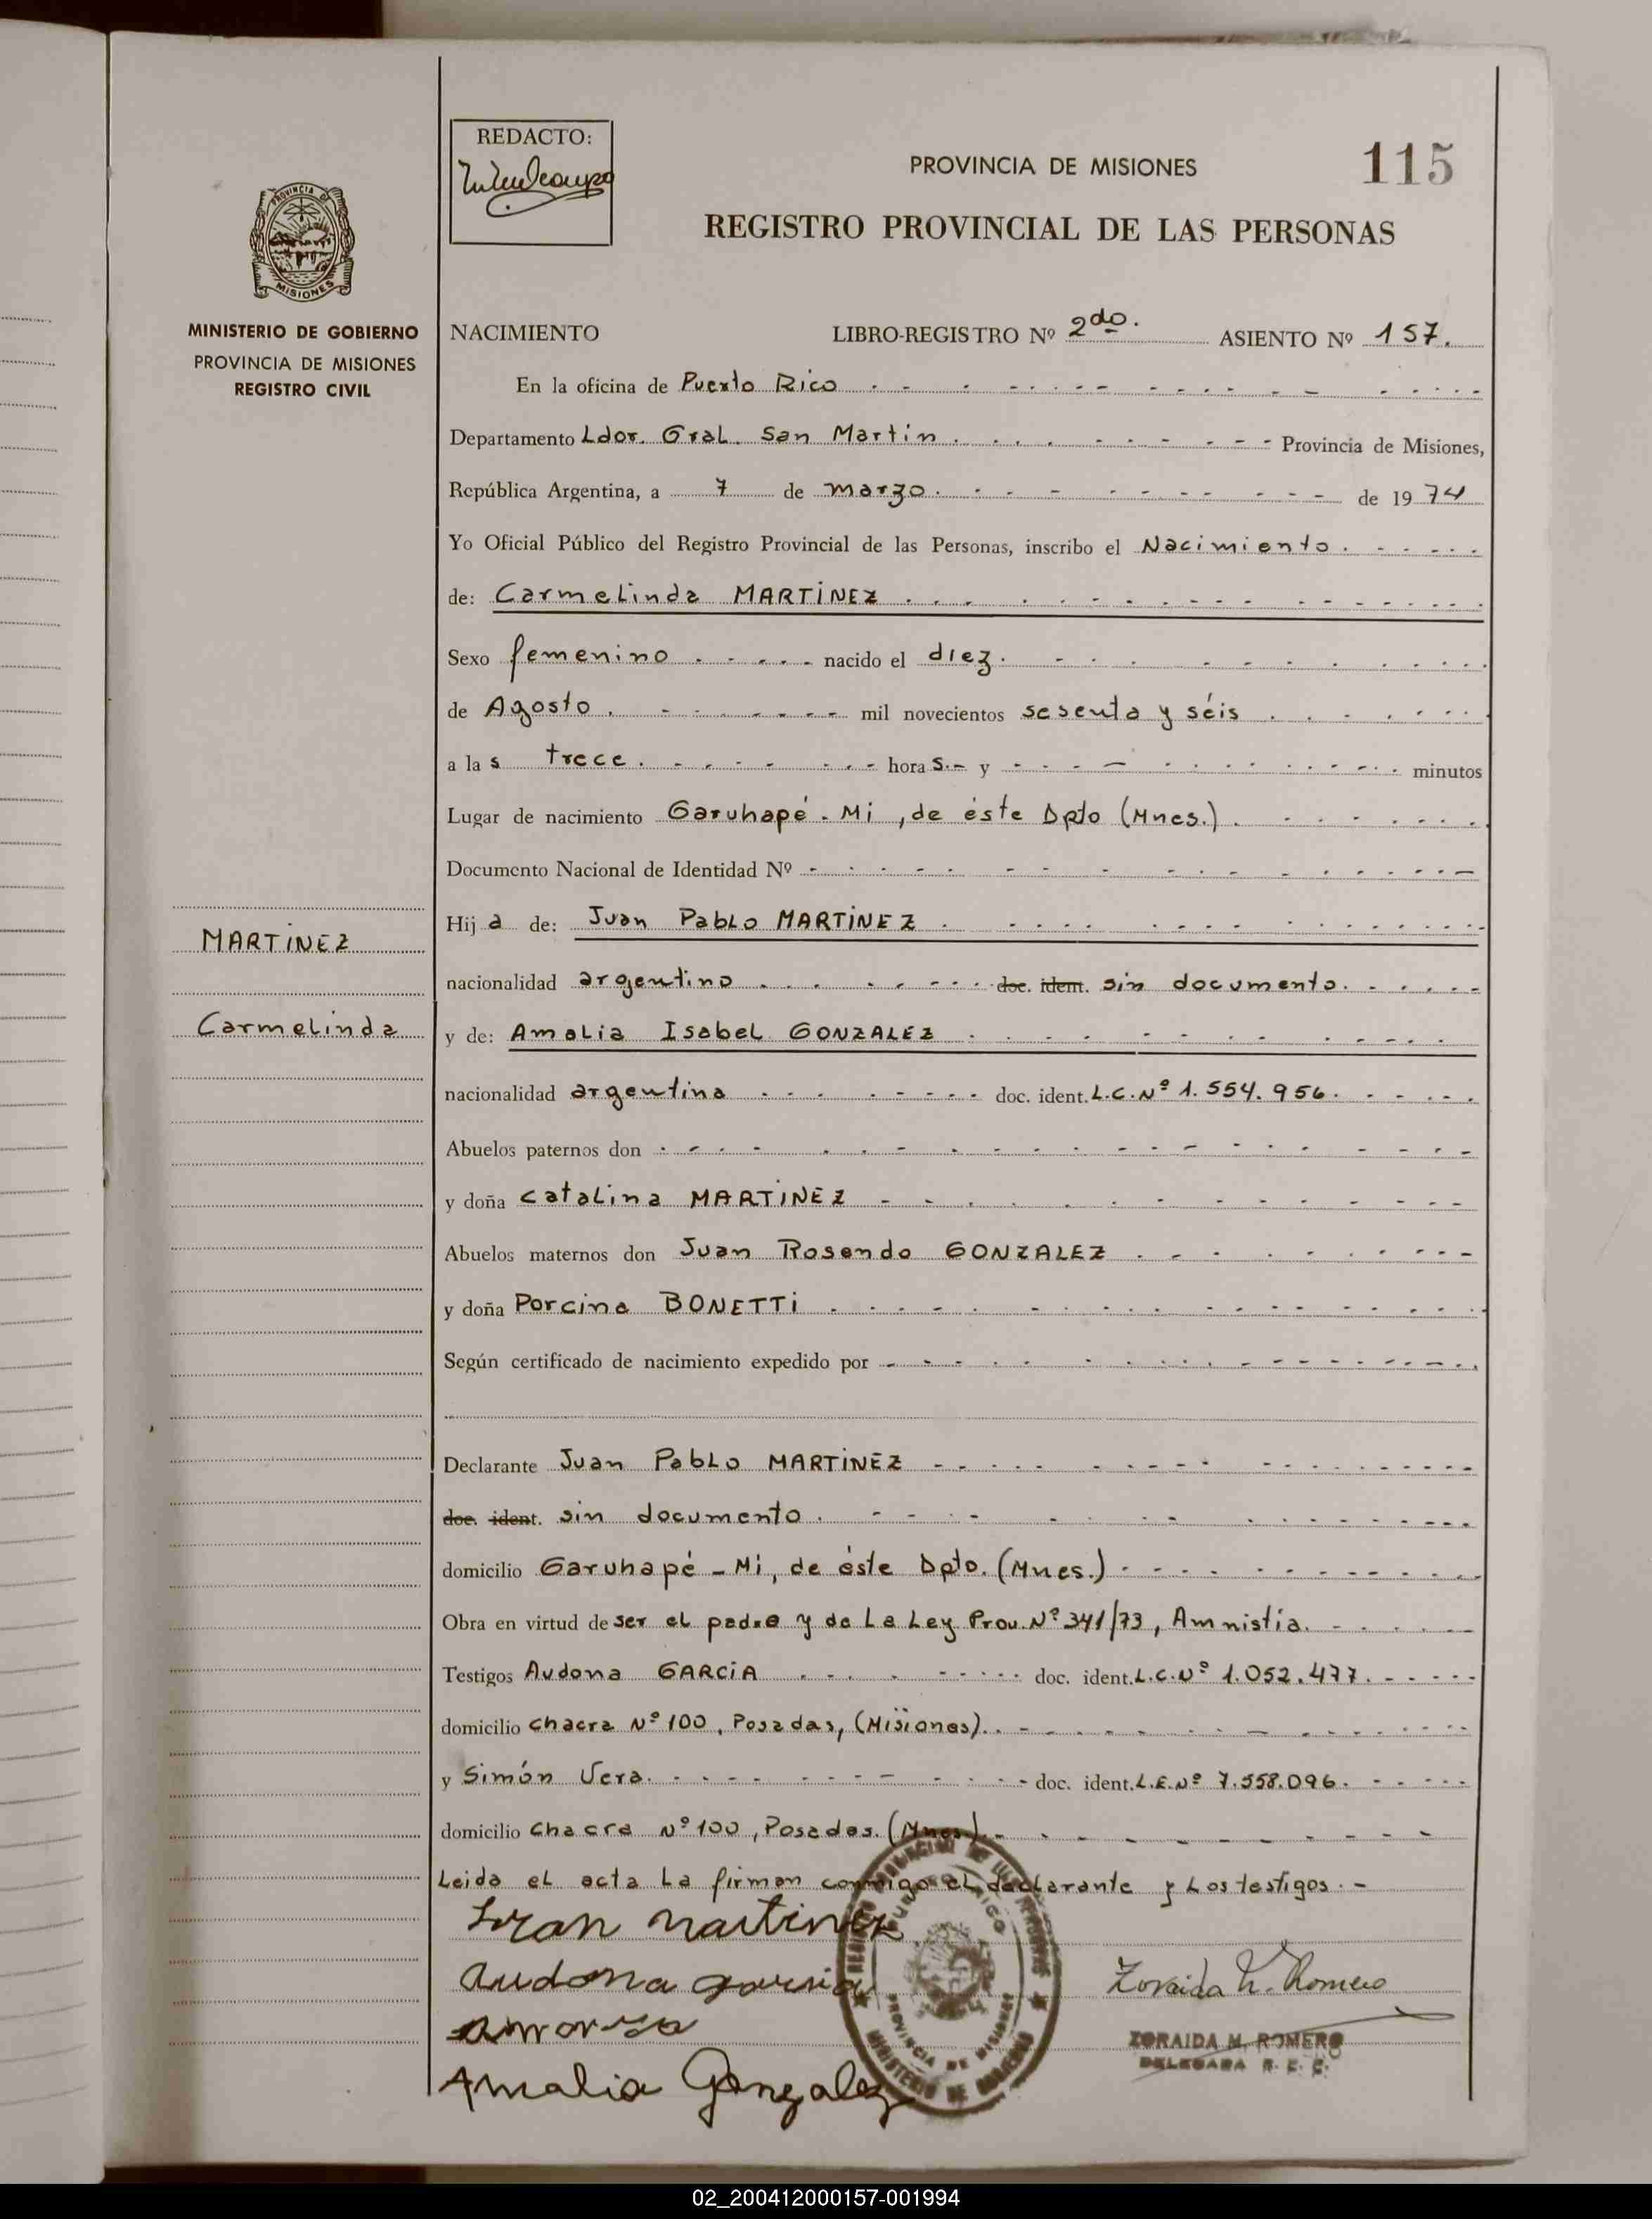 REDACTO:
PROVINCIA DE MISIONES
115
REGISTRO PROVINCIAL DE LAS PERSONAS
PROVINCIA DE
MISIONES
MINISTERIO DE GOBIERNO
PROVINCIA DE MISIONES
REGISTRO CIVIL
NACIMIENTO LIBRO-REGISTRO Nº 2do. ASIENTO Nº 157.
En la oficina de Puerto Rico
Departamento Ldor. Gral. San Martín. Provincia de Misiones,
República Argentina, a 7 de marzo. de 1974
Yo Oficial Público del Registro Provincial de las Personas, inscribo el Nacimiento.
de: Carmelinda MARTINEZ
Sexo femenino nacido el diez.
de Agosto. mil novecientos sesenta y séis
a las trece. horas.- y minutos
Lugar de nacimiento Garuhapé - Mi, de éste Dpto (Mnes.).
Documento Nacional de Identidad Nº
Hija de: Juan Pablo MARTINEZ
nacionalidad argentino doc. ident. sin documento.
y de: Amalia Isabel GONZALEZ
nacionalidad argentina doc. ident. L.C.Nº 1.554.956.
Abuelos paternos don
y doña Catalina MARTINEZ
Abuelos maternos don Juan Rosendo GONZALEZ
y doña Porcina BONETTI
Según certificado de nacimiento expedido por
Declarante Juan Pablo MARTINEZ
doc. ident. sin documento.
domicilio Garuhapé - Mi, de éste Dpto. (Mnes.)
Obra en virtud de ser el padre y de la Ley Prov. Nº 341/73, Amnistía.
Testigos Audona GARCIA doc. ident. L.C.Nº 1.052.477.
domicilio chacra Nº 100, Posadas, (Misiones).
y Simón Vera. doc. ident. L.E.Nº 7.558.096.
domicilio Chacra Nº 100, Posadas. (Mnes).
Leida el acta la firman conmigo el declarante y los testigos.-
MARTINEZ
Carmelinda
Martinez
Audona
Amalia Gonzalez
PROVINCIA DE MISIONES
MINISTERIO DE GOBIERNO
Zoraida M. Romero
ZORAIDA M. ROMERO
DELEGADA R. E. C.
02_200412000157-001994